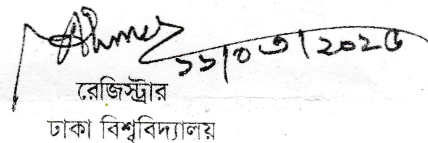 Ahmed
১১/০৩/২০২৫
রেজিস্ট্রার
ঢাকা বিশ্ববিদ্যালয়